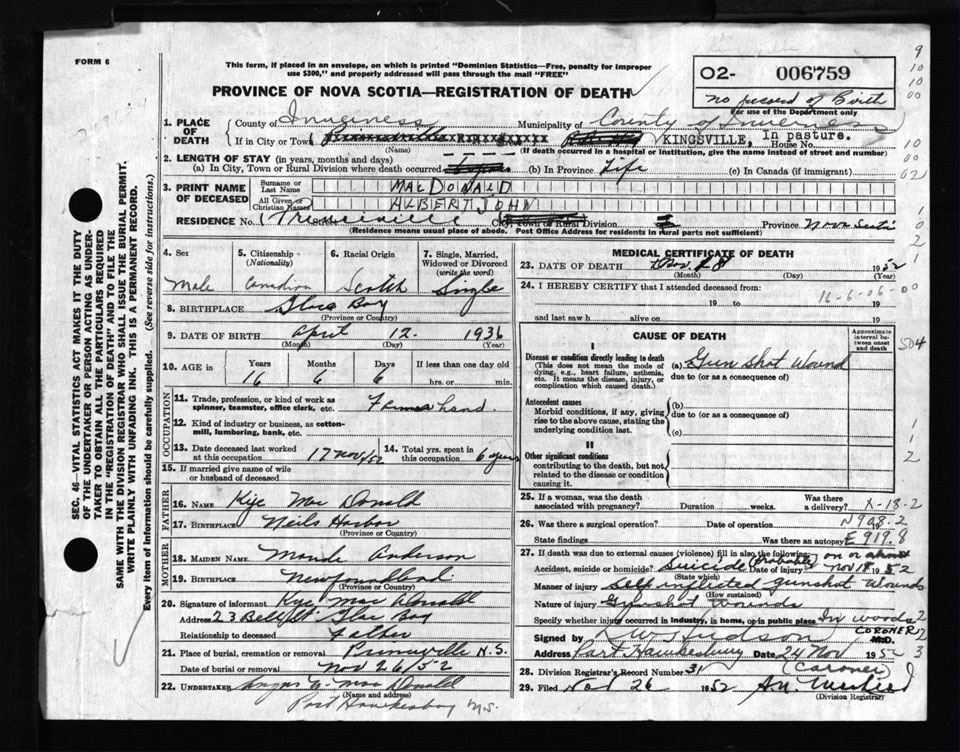 FORM 6
This form, if placed in an envelope, on which is printed "Dominion Statistics—Free, penalty for improper
use $300," and properly addressed will pass through the mail "FREE"
PROVINCE OF NOVA SCOTIA—REGISTRATION OF DEATH
O2- 006759
No record of Birth
For use of the Department only
1. PLACE OF DEATH
County of Inverness Municipality of County of Inverness
If in City or Town KINGSVILLE, in pasture. House No.
(Name) (If death occurred in a hospital or institution, give the name instead of street and number)
2. LENGTH OF STAY (in years, months and days)
(a) In City, Town or Rural Division where death occurred (b) In Province Life (c) In Canada (if immigrant)
3. PRINT NAME OF DECEASED
Surname or Last Name MACDONALD
All Given or Christian Names ALBERT JOHN
RESIDENCE No. Street City, Town or Rural Division Province Nova Scotia
(Residence means usual place of abode. Post Office Address for residents in rural parts not sufficient)
4. Sex Male
5. Citizenship (Nationality) Canadian
6. Racial Origin Scotch
7. Single, Married, Widowed or Divorced (write the word) Single
8. BIRTHPLACE Glace Bay
(Province or Country)
9. DATE OF BIRTH April 12. 1936
(Month) (Day) (Year)
10. AGE in Years Months Days If less than one day
16 6 6 hrs. or min.
OCCUPATION
11. Trade, profession or kind of work as spinner, teamster, office clerk, etc. hand.
12. Kind of industry or business, as cotton-mill, lumbering, bank, etc.
13. Date deceased last worked at this occupation 17 Nov/52
14. Total yrs. spent in this occupation 6 years
15. If married give name of wife or husband of deceased
FATHER
16. NAME Kije Mac Donald
17. BIRTHPLACE Neils Harbor
(Province or Country)
MOTHER
18. MAIDEN NAME Maude Anderson
19. BIRTHPLACE Newfoundland
(Province or Country)
20. Signature of informant Kije Mac Donald
Address 23 Glace Bay
Relationship to deceased Father
21. Place of burial, cremation or removal N.S.
Date of burial or removal Nov 26/52
22. UNDERTAKER Angus C. Mac Donald
(Name and address)
Port Hawkesbury N.S.
MEDICAL CERTIFICATE OF DEATH
23. DATE OF DEATH Nov. 18 1952
(Month) (Day) (Year)
24. I HEREBY CERTIFY that I attended deceased from:
16-6-06-00
19 to 19
and last saw h alive on 19
CAUSE OF DEATH
Approximate interval between onset and death
I
Disease or condition directly leading to death (This does not mean the mode of dying, e.g., heart failure, asthenia, etc. It means the disease, injury, or complication which caused death.)
(a) Gun Shot Wound
due to (or as a consequence of)
Antecedent causes
Morbid conditions, if any, giving rise to the above cause, stating the underlying condition last.
(b)
due to (or as a consequence of)
(c)
II
Other significant conditions contributing to the death, but not related to the disease or condition causing it.
25. If a woman, was the death associated with pregnancy? Duration weeks. Was there a delivery? X-18-2
26. Was there a surgical operation? Date of operation N908.2
State findings Was there an autopsy? E919.8
27. If death was due to external causes (violence) fill in also the following:
Accident, suicide or homicide? Suicide (Probable) Date of injury on or about Nov 18 1952
(State which)
Manner of injury Self inflicted gunshot Wounds
(How sustained)
Nature of injury Gunshot Wounds
Specify whether injury occurred in industry, in home, or in public place In woods
Signed by R W Hudson CORONER M.D.
Address Port Hawkesbury Date 24 Nov 1952
28. Division Registrar's Record Number 31 (Coroner)
29. Filed Nov 26 1952
(Division Registrar)
SEC. 46—VITAL STATISTICS ACT MAKES IT THE DUTY
OF THE UNDERTAKER OR PERSON ACTING AS UNDER-
TAKER TO OBTAIN ALL THE PARTICULARS REQUIRED
IN THE "REGISTRATION OF DEATH" AND TO FILE THE
SAME WITH THE DIVISION REGISTRAR WHO SHALL ISSUE THE BURIAL PERMIT.
WRITE PLAINLY WITH UNFADING INK. THIS IS A PERMANENT RECORD.
Every item of information should be carefully supplied. (See reverse side for instructions.)
9
10
10
00
10
00
02
504